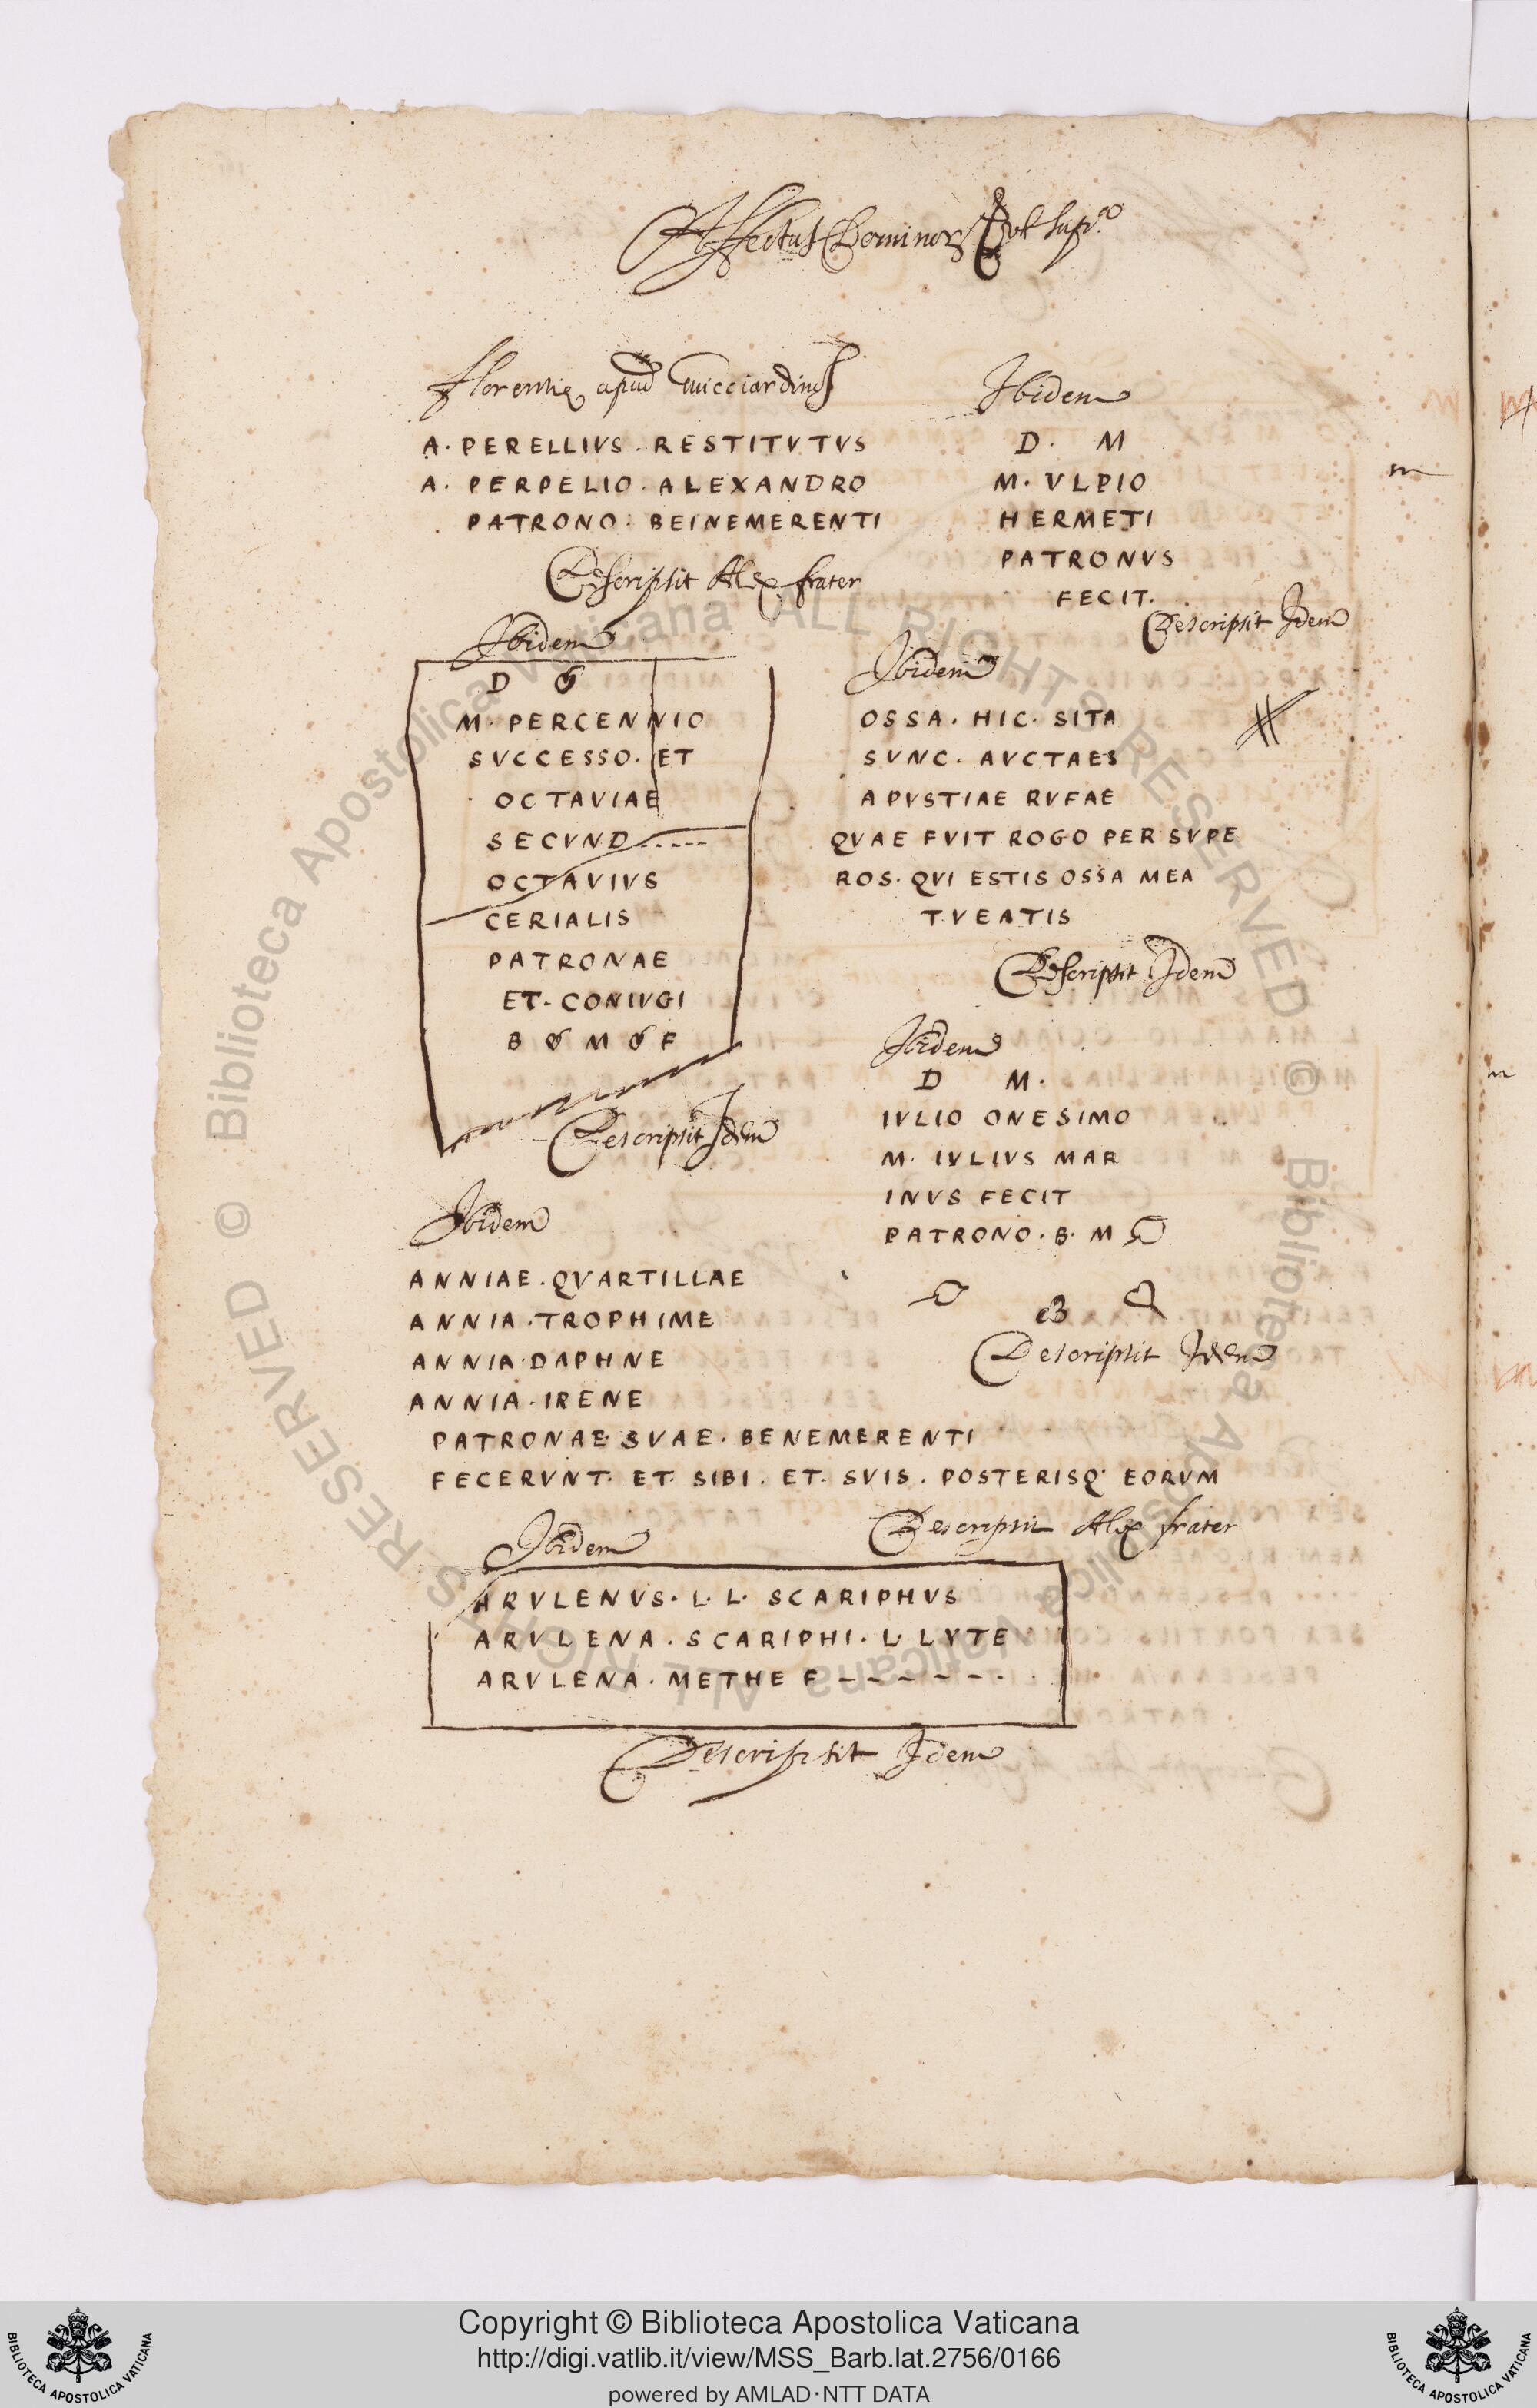 Affectus Dominor
Florentię apud Guicciardinos
A. PERELLIVS. RESTITVTVS
A. PERPELIO. ALEXANDRO
PATRONO. BEINEMERENTI
Descripsit Alex frater
Ibidem
D. M
M. VLPIO
HERMETI
PATRONVS
FECIT.
Descripsit Idem
Ibidem
D
M. PERCENNIO
SVCCESSO. ET
OCTAVIAE
SECVND.....
OCTAVIVS
CERIALIS
PATRONAE
ET. CONIVGI
B M F
Descripsit Idem
Ibidem
OSSA. HIC. SITA
SVNC. AVCTAES
APVSTIAE RVFAE
QVAE FVIT ROGO PER SVPE
ROS. QVI ESTIS OSSA MEA
TVEATIS
Descripsit Idem
Ibidem
D M.
IVLIO ONESIMO
M. IVLIVS MAR
INVS FECIT
PATRONO. B. M
Descripsit Idem
Ibidem
ANNIAE. QVARTILLAE
ANNIA. TROPHIME
ANNIA. DAPHNE
ANNIA. IRENE
PATRONAE SVAE. BENEMERENTI
FECERVNT. ET. SIBI. ET. SVIS. POSTERISQ. EORVM
Descripsit Alex frater
Ibidem
ARVLENVS. L. L. SCARIPHVS
ARVLENA. SCARIPHI. L. LYTE
ARVLENA. METHE F - - - - - - .
Descripsit Idem
m
© Biblioteca Apostolica Vaticana ALL RIGHTS RESERVED © Biblioteca Apostolica Vaticana ALL RIGHTS RESERVED
Copyright © Biblioteca Apostolica Vaticana
http://digi.vatlib.it/view/MSS_Barb.lat.2756/0166
powered by AMLAD·NTT DATA
BIBLIOTECA APOSTOLICA VATICANA
BIBLIOTECA APOSTOLICA VATICANA